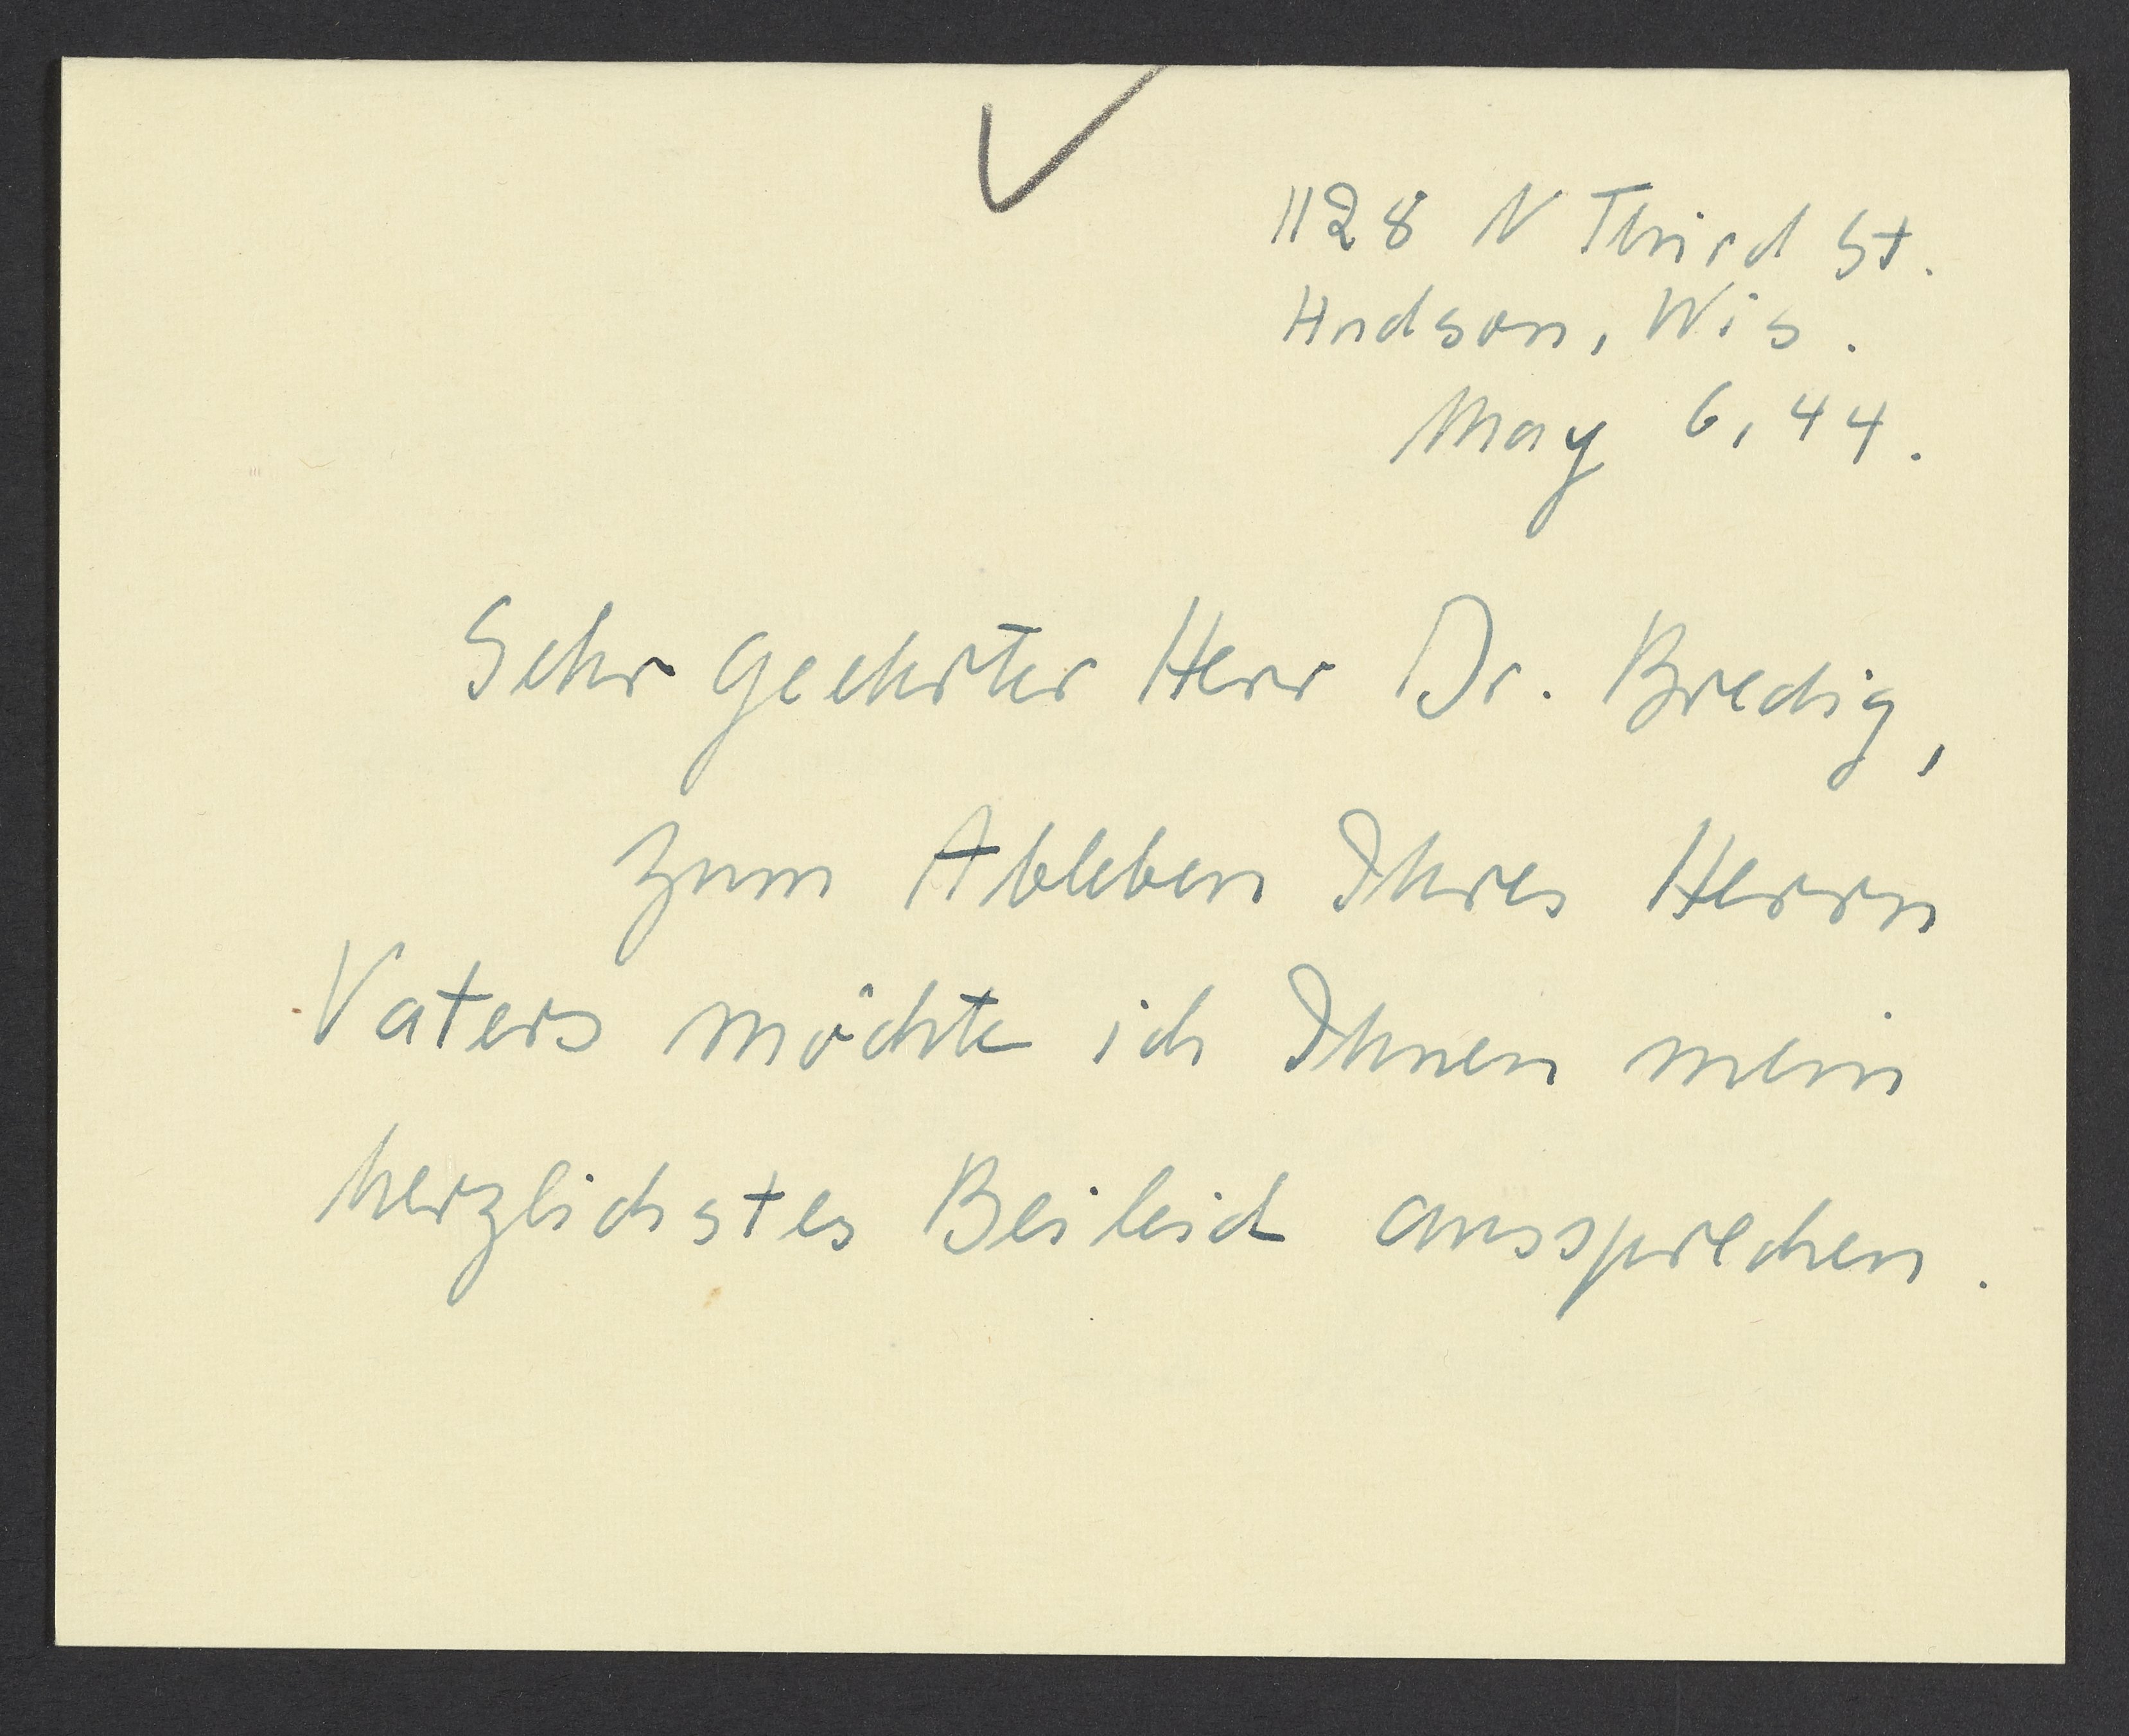 1128 N Third St.
Hudson, Wis.
May 6, 44.
Sehr geehrter Herr Dr. Bredig,
zum Ableben Ihres Herrn
Vaters möchte ich Ihnen mein
herzlichstes Beileid aussprechen.